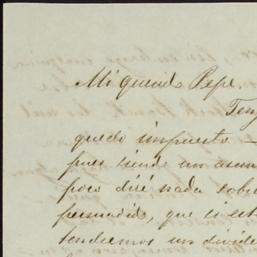 Mi querido Pepe.
Teng
quedo impuesto —
pues siendo un asun
poco diré nada sobre
persuadido, que si est
tendremos un divide